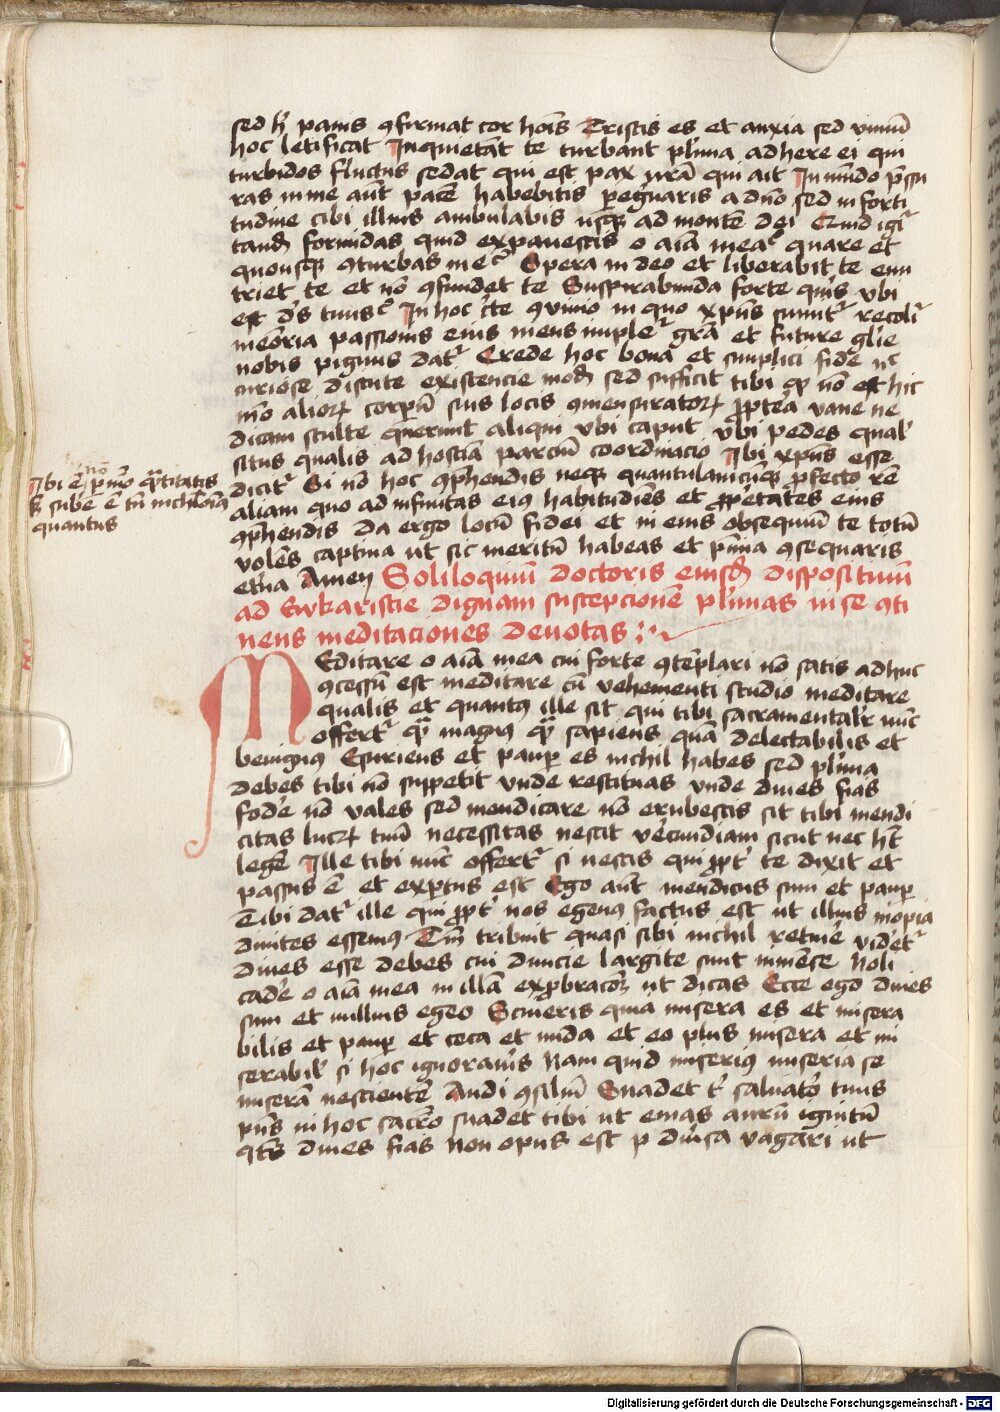 sed hͥ panis ꝯfirmat cor hoı̄s Tristis es et anxia sed vinū
hoc letificat Inquietāt te turbant pl'ima adhere ei qui
turbidos fluctus sedat qui est pax nr̄a qui ait In mūdo p̄ssu
ras in me aūt pacē habebitis peg̃naris a dn̄o sed in forti
tudine cibi illius ambulabis usqꝫ ad montē dei Quid igr̃
tandē formidas quid expauescis o aīa mea quare et
quousqꝫ ꝯturbas me Spera in deo et liberabit te enu
triet te et nō ꝯfundet te Suspirabunda forte quīs vbi
est d's tuus In hoc c̃te ꝯuiuio in quo xp̄us sumitr̃ recolir̃
meōria passionis eius mens impler̃ grā et future glīe
nobis pignus datr̃ Crede hoc bona et simplici fide nec
curiose discute existencie modū sed sufficit tibi qꝫ nō est hic
mō alioꝝ corpm̄ suis locis ꝯmensuratoꝝ ꝓptea vane ne
dicam stulte querunt aliqui vbi caput vbi pedes qual'
situs qualis ad hostiā parcium coordinacio Ibi xpūs esse
dicitr̃ Si nō hoc ꝯp̄hendis neqꝫ quantulamcūqꝫ ꝓfecto rē
aliam quo ad infinitas eiꝰ habitudīes et ꝓpetates eius
ꝯp̄hendis da ergo locū fidei et in eius obsequiū te totū
volēs captiua ut sic meritū habeas et p̄mia ꝯsequaris
et'na Amen Soliloquiū doctoris eiusdē dispositiuū
ad Ewkaristie dignam suscepcionē pl'imas in se ꝯti
nens meditaciones deuotas :~
MEditare o aīa mea cui forte ꝯtēplari nō satis adhuc
ꝯcessū est meditare cū vehementi studio meditare
qualis et quantꝰ ille sit qui tibi sacramental'r nūc
offertr̃ q̄ magnꝰ q̄ sapiens quā delectabilis et
benignꝰ Esuriens et paup es nichil habes sed pl'ima
debes tibi nō suppetit vnde restituas vnde diues fias
fod'e nō vales sed mendicare nō erubescis sit tibi mendi
citas lucꝝ tuū necessitas nescit v'ecundiam sicut nec hꝫ
legē Ille tibi nūc offertr̃ si nescis qui ꝓpt' te dixit et
passus ē et expertus est Ego aūt mendicus sum et paup
Tibi datr̃ ille qui ꝓpt' nos egenꝰ factus est ut illius inopia
diuites essemꝰ Tm̄ tribuit quasi sibi nichil retinē videtr̃
diues esse debes cui diuicie largite sunt inmēse Noli
cad'e o aīa mea in illā exprobracōꝫ ut dicas Ecce ego diues
sum et nullius egeo Scineris quia misera es et misera
bilis et paup et ceca et nuda et eo plus misera et mi
serabil' si hoc ignorau'is Nam quid miseriꝰ miseria se
miserā nescientē Audi ꝯsiliū Suadet t' saluatō tuus
pn̄s in hoc sacrō suadet tibi ut emas aurū ignitū
qtꝰ diues fias Non opus est p diūsa vagari ut
Ibi ē nō pm̄o q̄titatis
quantus